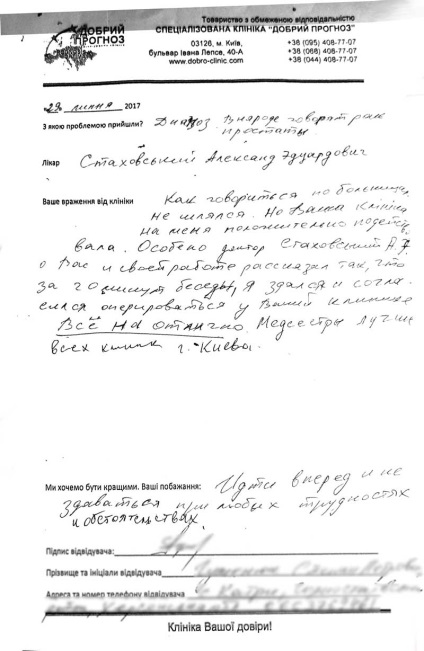 ДОБРИЙ
ПРОГНОЗ
Товариство з обмеженою відповідальністю
СПЕЦІАЛІЗОВАНА КЛІНІКА "ДОБРИЙ ПРОГНОЗ"
03126, м. Київ,
бульвар Івана Лепсе, 40-А
www.dobro-clinic.com
+38 (095) 408-77-07
+38 (068) 408-77-07
+38 (044) 408-77-07
29 липня 2017
З якою проблемою прийшли? Диагноз В народе говорят рак
простаты
Лікар Стаховський Александ Эдуардович
Ваше враження від клініки Как говориться по больницам
не шлялся. Но Ваша клініка
на меня положительно подейст
вала. Особено доктор Стаховський А.Э
о Вас и своей работе рассказал так, что
за 20 минут беседы, я здался и согла
сился оперироваться у Вашей клинике
Всё на отлично. Медсестры лучшие
всех клиник г. Киева.
Ми хочемо бути кращими. Ваші побажання: Идти вперед и не
здаваться при любых трудностях
и обстоятельствах.
Підпис відвідувача:
Прізвище та ініціали відвідувача
Адреса та номер телефону відвідувача
Клініка Вашої довіри!